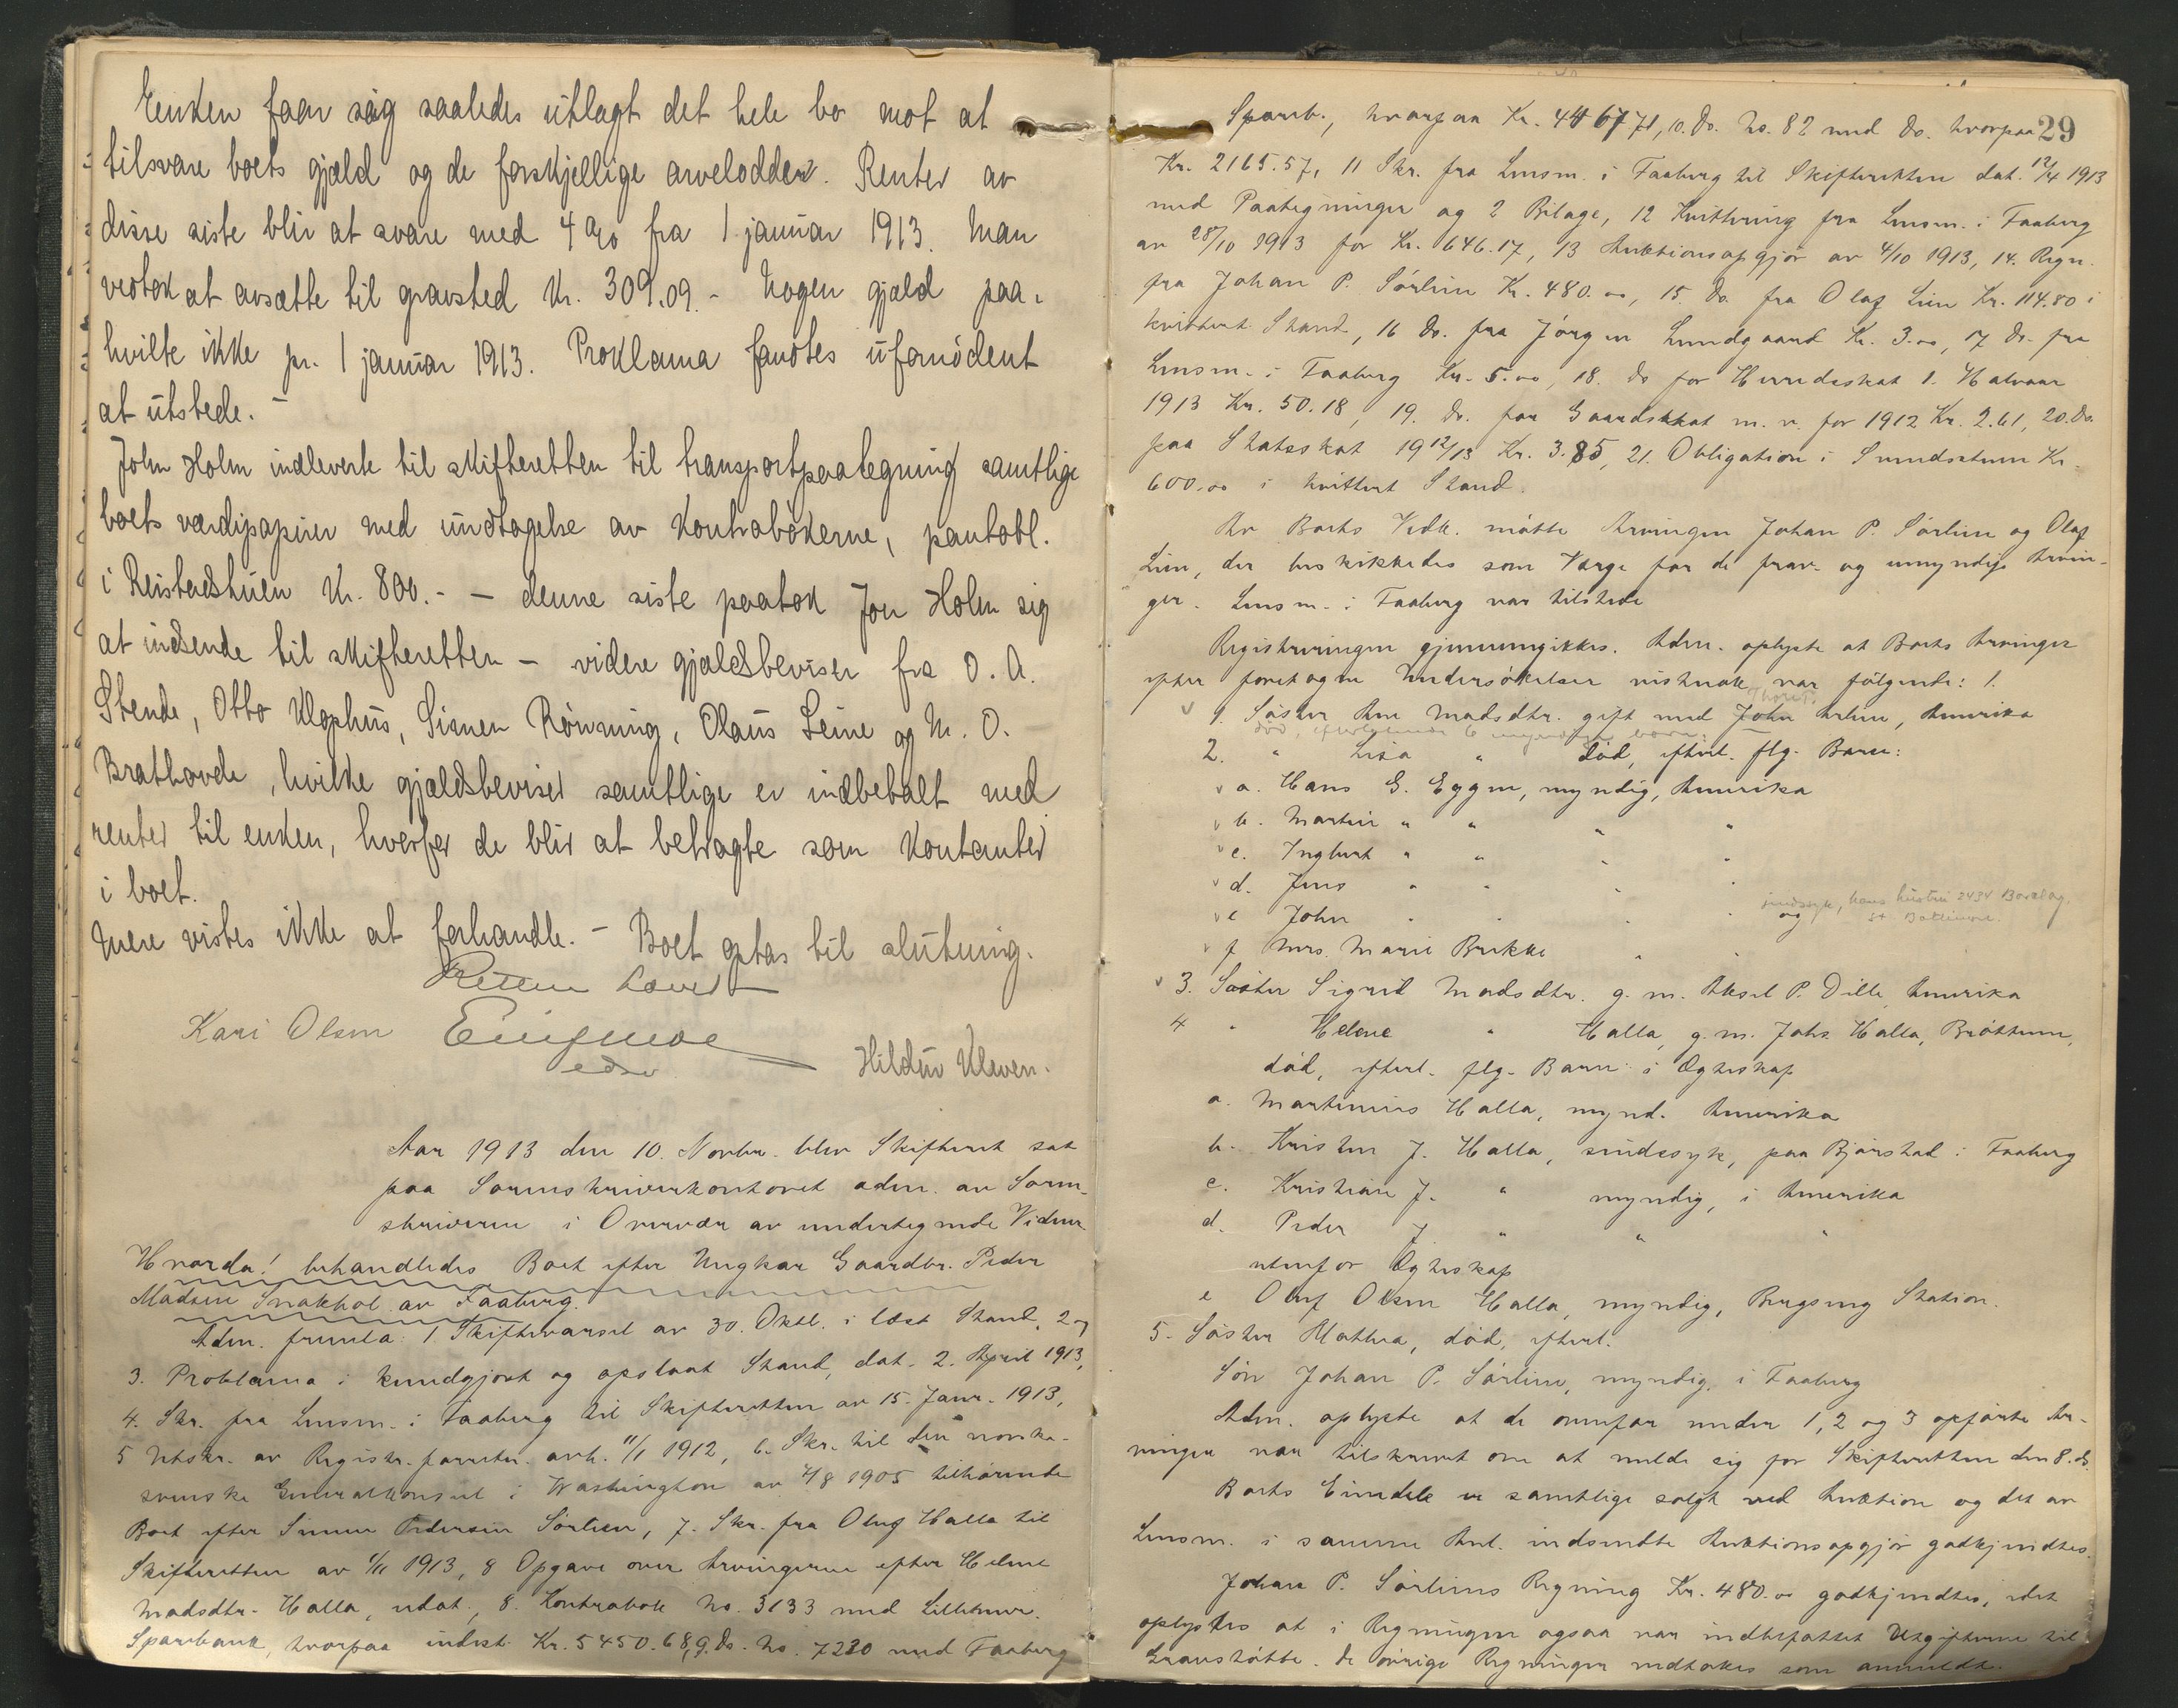 Enken faar sig saaledes utlagt det hele bo mot at
tilsvare boets gjæld og de forskjellige arvelodder. Renter av
disse siste blir at svare med 4 % fra 1 januar 1913. Man
vedtok at avsætte til gravsted Kr. 309.09. - Nogen gjæld paa-
hvilte ikke pr. 1 januar 1913. Proklama fandtes ufornødent
at utstede. -
John Holm indleverte til skifteretten til transportpaategning samtlige
boets værdipapirer med undtagelse av Kontrabøkerne, pantobl.
i Reistadstuen Kr. 800.- - denne siste paatok Jon Holm sig
at indsende til skifteretten - videre gjældsbeviser fra O. A.
Stende, Otto Klophus, Simen Rønning, Olaus Leine og M. O.
Brathovde, hvilke gjældsbeviser samtlige er indbetalt med
renter til enken, hvorfor de blir at betragte som Kontanter
i boet.
Mere vistes ikke at forhandle. - Boet optas til slutning.
Retten hævet
Kari Olsen
edsv.
Hildur Kleven.
Aar 1913 den 10. Novbr. blev Skifteret sat
paa Sorenskriverkontoret adm. av Soren-
skriveren i Overvær av undertegnede Vidner.
Hvorda! behandledes Boet efter Ungkar Gaardbr. Peder
Madsen Snakhol av Faaberg.
Adm. fremla: 1 Skiftevarsel av 30. Oktb. i læst Stand, 2 og
3. Proklama i kundgjort og opslaat Stand, dat. 2. April 1913,
4. Skr. fra Lensm. i Faaberg til Skifteretten av 15. Janr. 1913,
5 Utskr. av Registr.forretn. avh. 11/1 1912, 6. Skr. til den norske-
svenske Generalkonsul i Washington av 4/8 1905 tilhørende
Boet efter Simen Pedersen Sørlien, 7. Skr. fra Oluf Halla til
Skifteretten av 1/11 1913, 8 Opgave over Arvingerne efter Helene
Madsdtr. Halla, udat., 8. Kontrabok No. 3133 med Lillehmr.
Sparebank, hvorpaa indest. Kr. 5450.68, 9. Do. No. 7220 med Faaberg
29
Spareb., hvorpaa Kr. 4467.71, 10. Do. No. 82 med do. hvorpaa
Kr. 2165.57, 11 Skr. fra Lensm. i Faaberg til Skifteretten dat. 12/4 1913
med Paategninger og 2 Bilage, 12 Kvittering fra Lensm. i Faaberg
av 28/10 1913 for Kr. 646.17, 13 Auktionsopgjør av 4/10 1913, 14. Regn.
fra Johan P. Sørlien Kr. 480.00, 15. Do. fra Olaf Lien Kr. 114.80 i
kvittert Stand, 16 Do. fra Jørgen Lundgaard Kr. 3.00, 17 Do. fra
Lensm. i Faaberg Kr. 5.00, 18. Do for Herredsskat 1. Halvaar
1913 Kr. 50.18, 19. Do. for Gaardskat m. v. for 1912 Kr. 2.61, 20. Do.
paa Statsskat 1912/13 Kr. 3.85, 21. Obligation i Kr.
600.00 i kvittert Stand.
Av Boets Vedk. møtte Arvingen Johan P. Sørlien og Olaf
Lien, der beskikkedes som Værge for de frav. og umyndige Arvin-
ger. Lensm. i Faaberg var tilstede
Registreringen gjennemgikkes. Adm. oplyste at Boets Arvinger
efter foretagne Undersøkelser vistnok var følgende: 1.
1. Søster Ane Madsdtr. gift med John Arlien, Amerika
død, efterlatende 6 myndige børn:
2. " Lisa " død, efterl. flg. Barn:
a. Hans G. Eggen, myndig, Amerika
b. Martin " " " "
c. Ingbert " " " "
d. Jens " " " "
sindssyk, hans hustru 2434
e John " " " " og St. Baltimore.
f Mrs. Marie Brekke " "
3. Søster Sigrid Madsdtr. g. m. Aksel P. Dille, Amerika
4 " Helene " Halla, g. m. Johs. Halla, Brøttum,
død, efterl. flg. Barn i Egteskap
a. Martinius Halla, mynd. Amerika
b. Kristen J. Halla, sindssyk, paa Bjørstad i Faaberg
c. Kristian J. " myndig, i Amerika
d. Peder J. " " "
utenfor Egteskap
e Oluf Olsen Halla, myndig, Bergseng Station.
5. Søster Mathea, død, efterl.
Søn Johan P. Sørlien, myndig, i Faaberg
Adm. oplyste at de ovenfor under 1, 2 og 3 opførte Ar-
vinger var tilskrevet om at melde sig for Skifteretten den 8. ds.
Boets Eiendele er samtlige solgt ved Auktion og det av
Lensm. i samme Anl. indsendte Auktionsopgjør godkjendtes.
Johan P. Sørliens Regning Kr. 480.00 godkjendtes, idet
oplystes at i Regningen ogsaa var indbefattet Utgifterne til
Gravstøtte. De øvrige Regninger vedtokes som anmeldt.